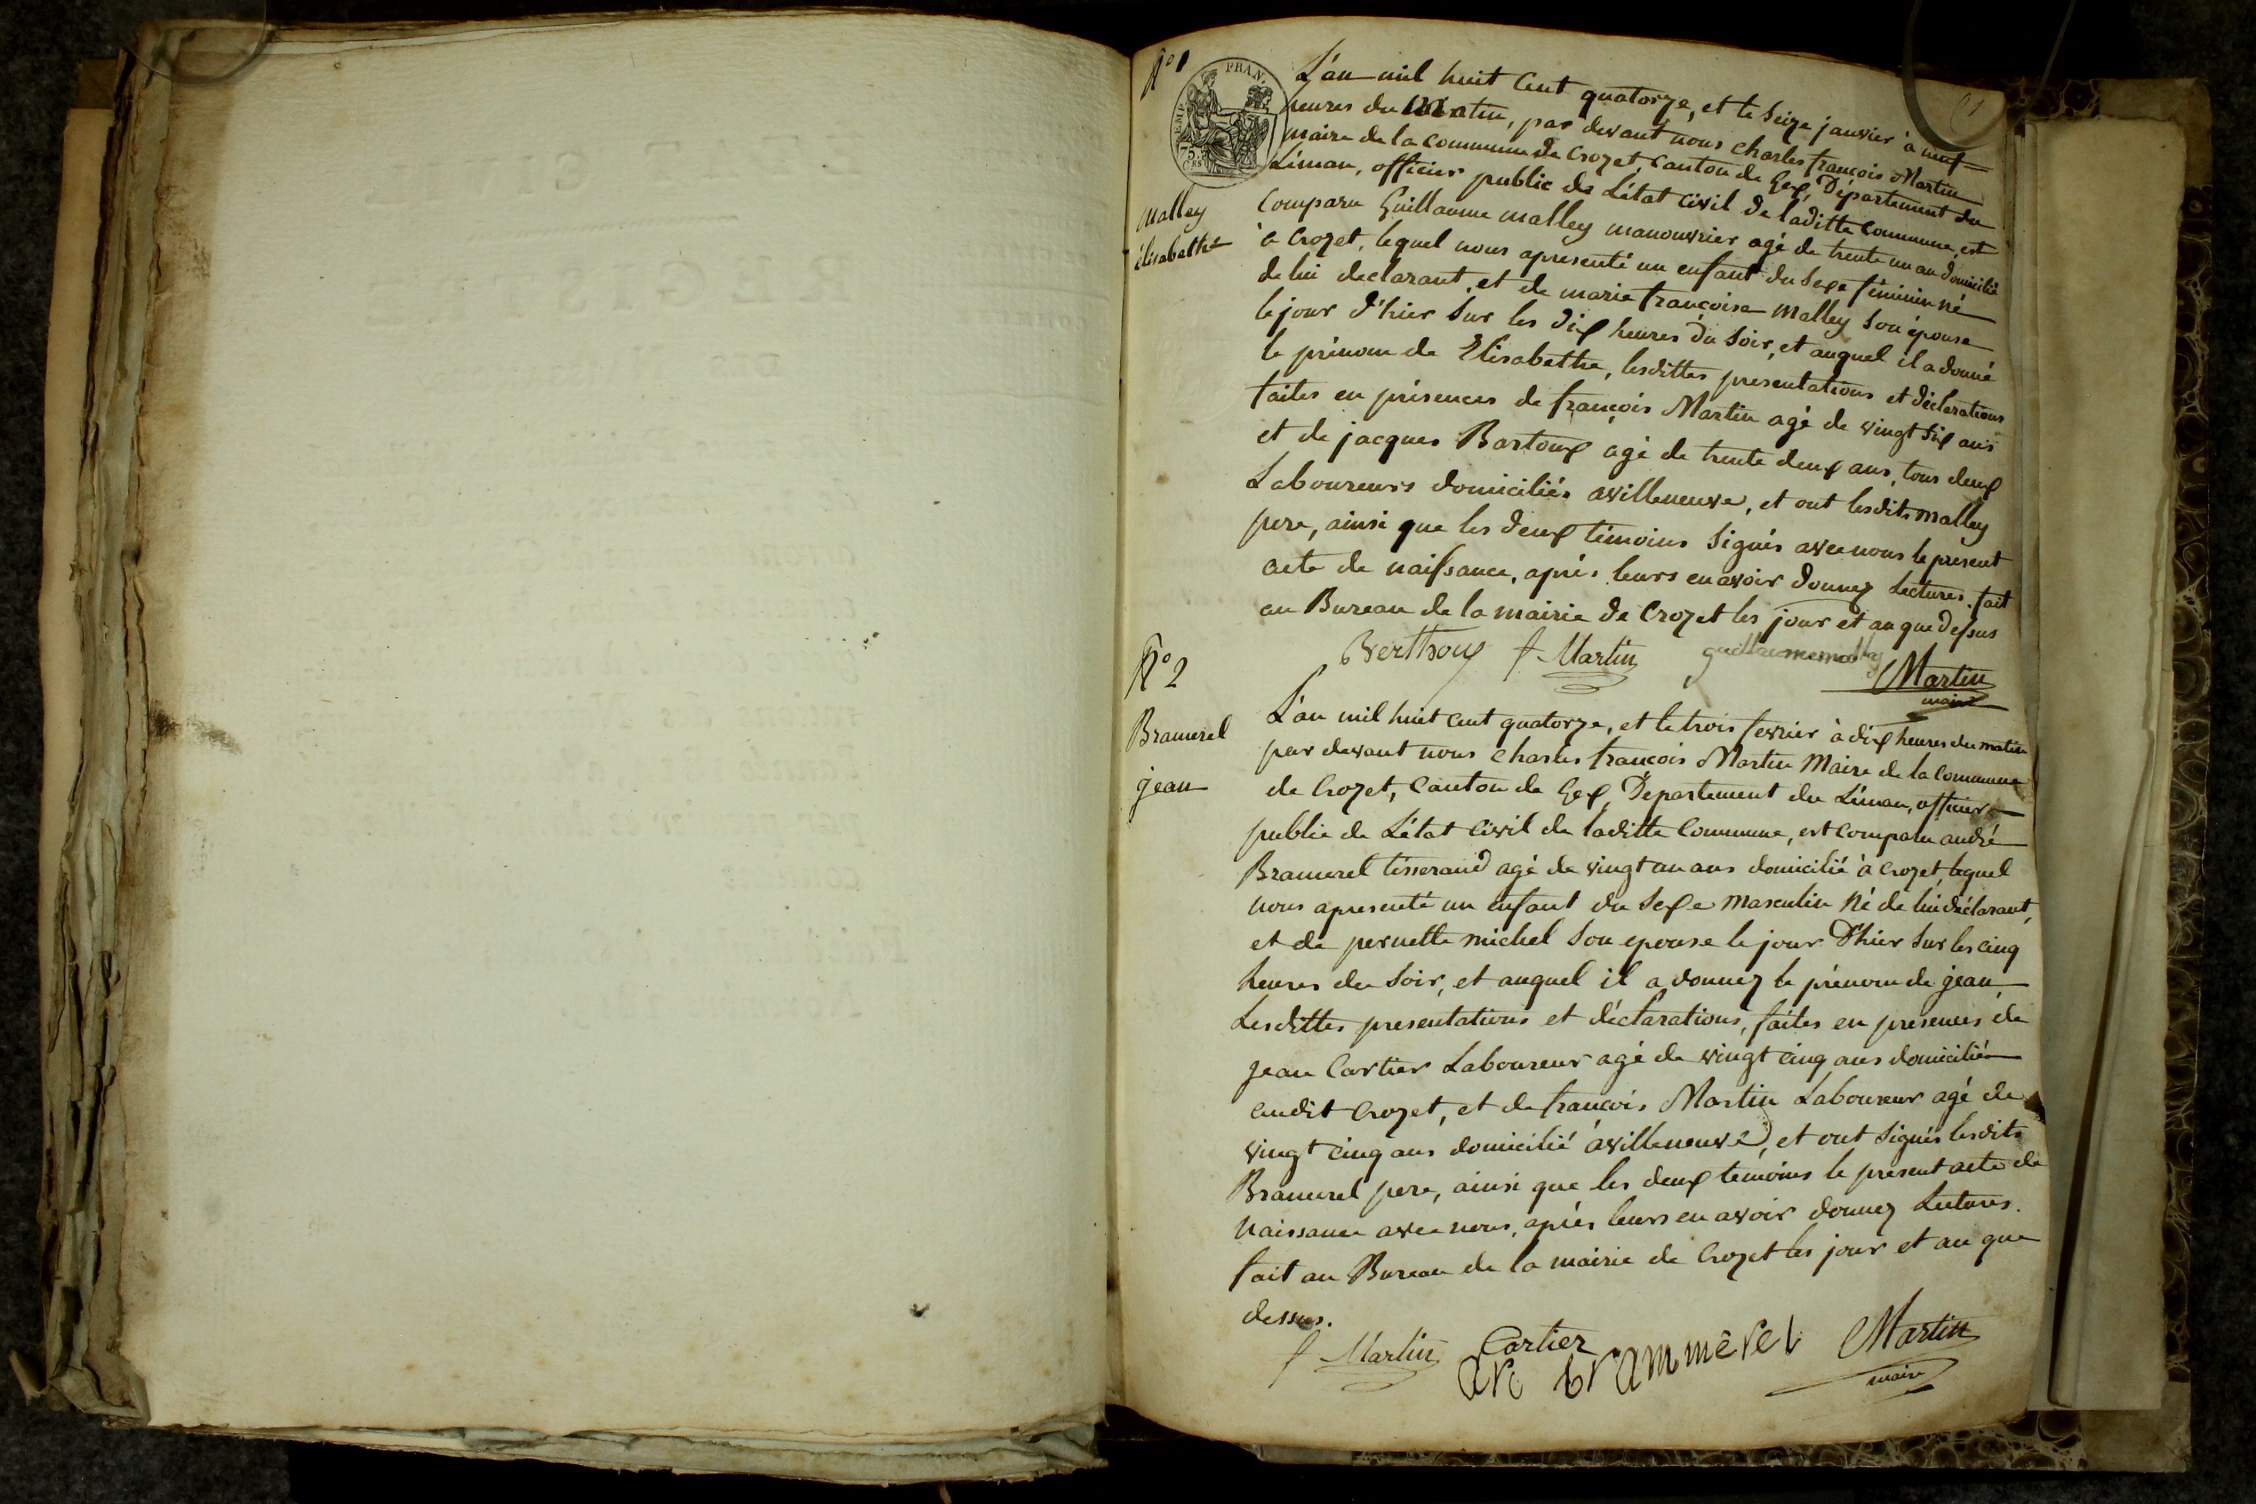 N° 1
EMP. FRAN.
75.
CES
Malley
Elisabethe
L'an mil huit Cent quatorze, et le Seize janvier à neuf
heures du Matin, par devant nous charles françois Martin
maire de la Commune de Crozet, Canton de Gex, Département du
Léman, officier public de L'état Civil de laditte Commune, est
Comparu Guillaume malley manouvrier agé de trente un an domicilié
à Crozet, lequel nous apresenté un enfant du Sexe féminin né
de lui declarant, et de marie françoise Malley Son épouse
le jour d'hier Sur les dix heures du Soir, et auquel il a donné
le prénom de Elisabethe, lesdittes presentations et déclarations
faites en présences de françois Martin agé de vingt Six ans
et de jacques Bartoux agé de trente deux ans, tous deux
Laboureurs domiciliés avilleneuve, et ont lesdits malley
pere, ainsi que les deux témoins Signés avec nous le present
acte de naissance, après leurs en avoir donnez Lectures. fait
au Bureau de la mairie de Crozet les jour et an que dessus
Berthoux f Martin guillaume mally Martin
maire
N° 2
Bramerel
jean
L'an mil huit Cent quatorze, et le trois fevrier à dix heures du matin
par devant nous Charles françois Martin Maire de la Commune
de Crozet, Canton de Gex, Département du Léman, officier
public de L'état Civil de laditte Commune, est Comparu andré
Bramerel tisserand agé de vingt un ans domicilié à Crozet, lequel
nous apresenté un enfant du Sexe Masculin né de lui déclarant,
et de pernette michel Son epouse le jour D'hier Sur les cinq
heures du Soir, et auquel il a donnez le prénom de jean,
Lesdittes presentations et déclarations, faites en presences de
jean Cartier Laboureur agé de vingt cinq ans domicilié
audit Crozet, et de françois Martin Laboureur agé de
vingt cinq ans domicilié avilleneuve, et ont Signés lesdits
Bramerel pere, ainsi que les deux temoins le present acte de
Naissance avec nous, après leurs en avoir donnez Lectures.
fait au Bureau de la mairie de Crozet les jour et an que
dessus.
f Martin Cartier Martin
brammerel maire